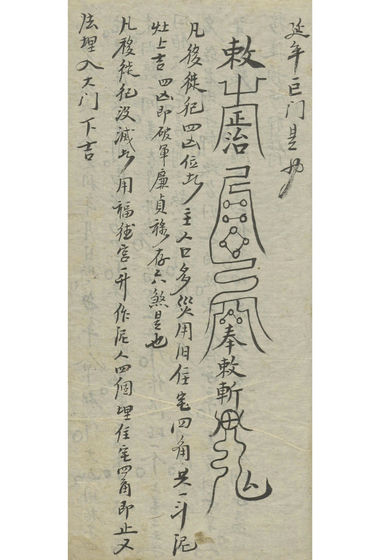 延年巨门是也
敕正治奉敕斬
凡移徙犯四凶位者主人口多災用旧住宅四角共一斗泥
灶上吉四凶即破軍廉貞祿存六煞是也
凡移徙犯没滅者用福德宫一升作泥人四個埋住宅四角即止又
法埋入大门下吉